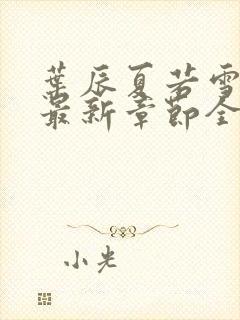 叶辰夏若雪
最新章节全
小光